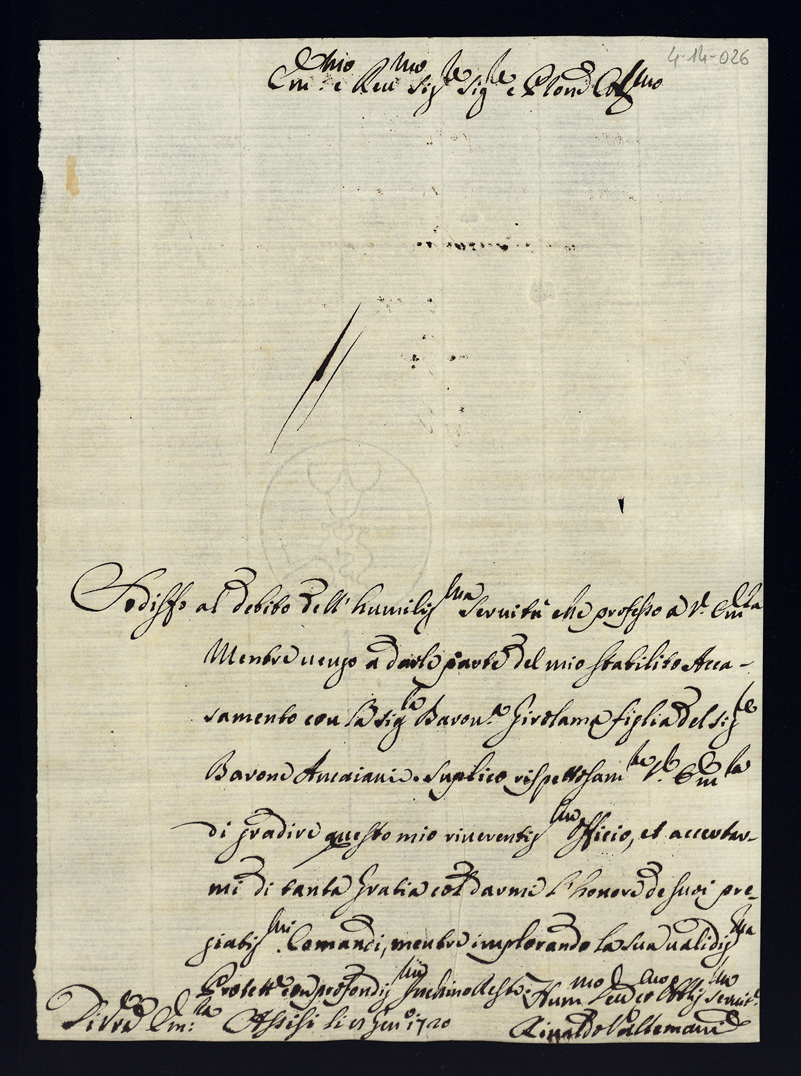 4-14-026
Em.mo e Reu.mo Sig.re Sig.re e Pron Col.mo
Sodisfo al debito dell' humilis.ma seruitù che professo a V. Em.za
Mentre uengo a darle parte del mio stabilito Acca-
samento con la Sig.ra Baron.a Girolama figlia del Sig.re
Barone Ancaiani. Suplico rispettosam.te V. Em.za
di gradire questo mio riuerentis.mo officio, et accertar-
mi di tanta gratia col darme l'honore de suoi pre-
giatis.mi Comandi, mentre implorando la sua ualidis.ma
Protett.e con profondis.mo Inchino Resto
Di V.ra Em.za Assisi li Gen.o 1720
Hum.mo Deu.mo et Obblig.mo Seruit.e
Rinaldo Vallemani